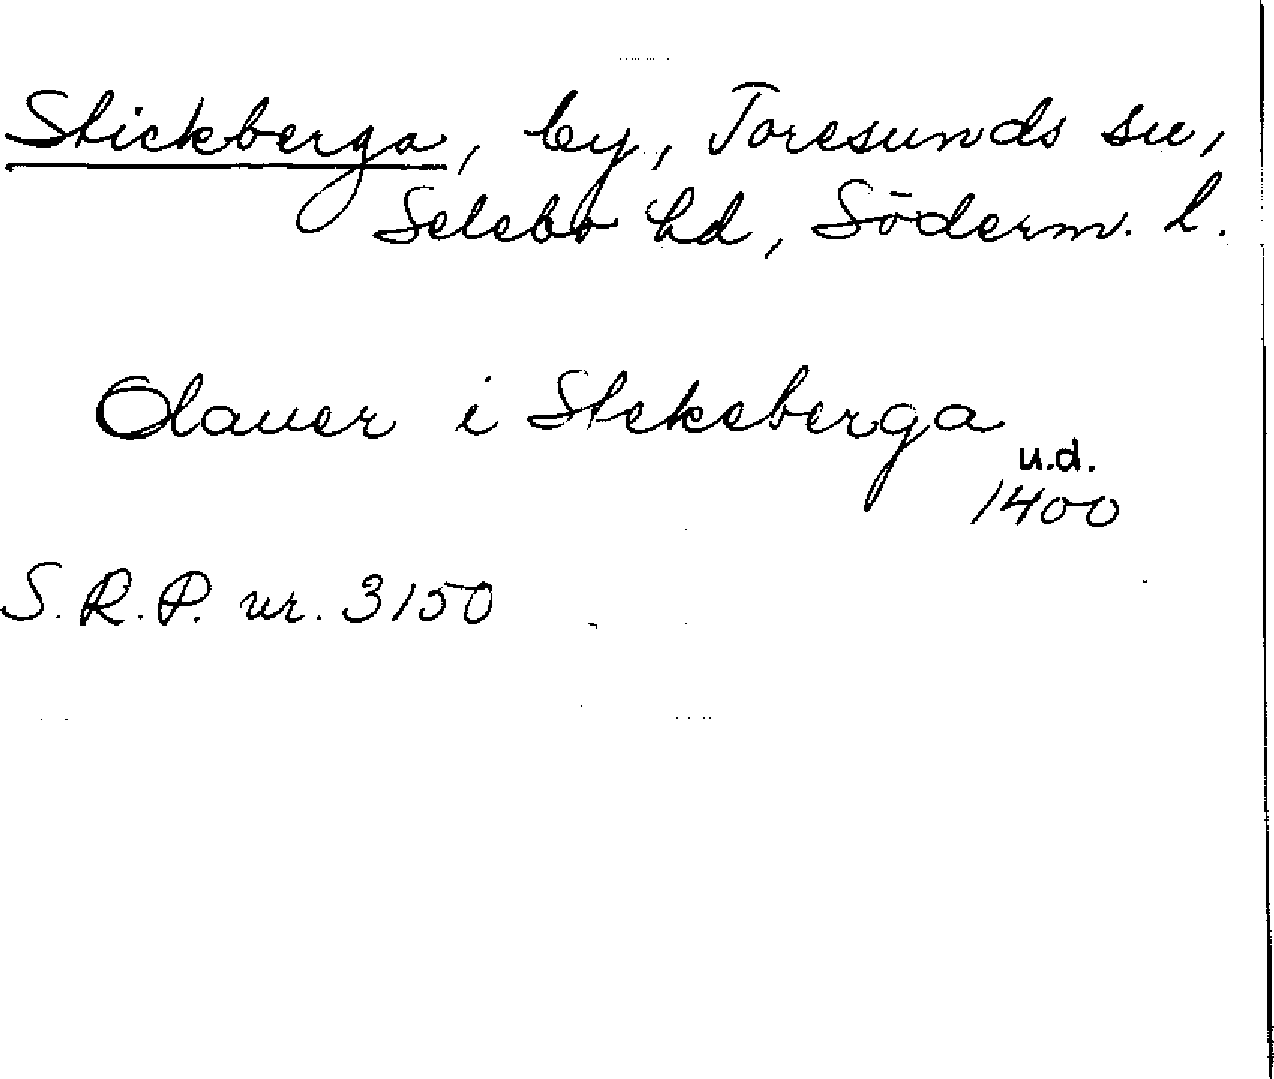 Stickberga, by, Toresunds sn,
Selebo hd, Söderm. l.
Olauer i Stekeberga
u.d.
1400
S.R.P. nr. 3150